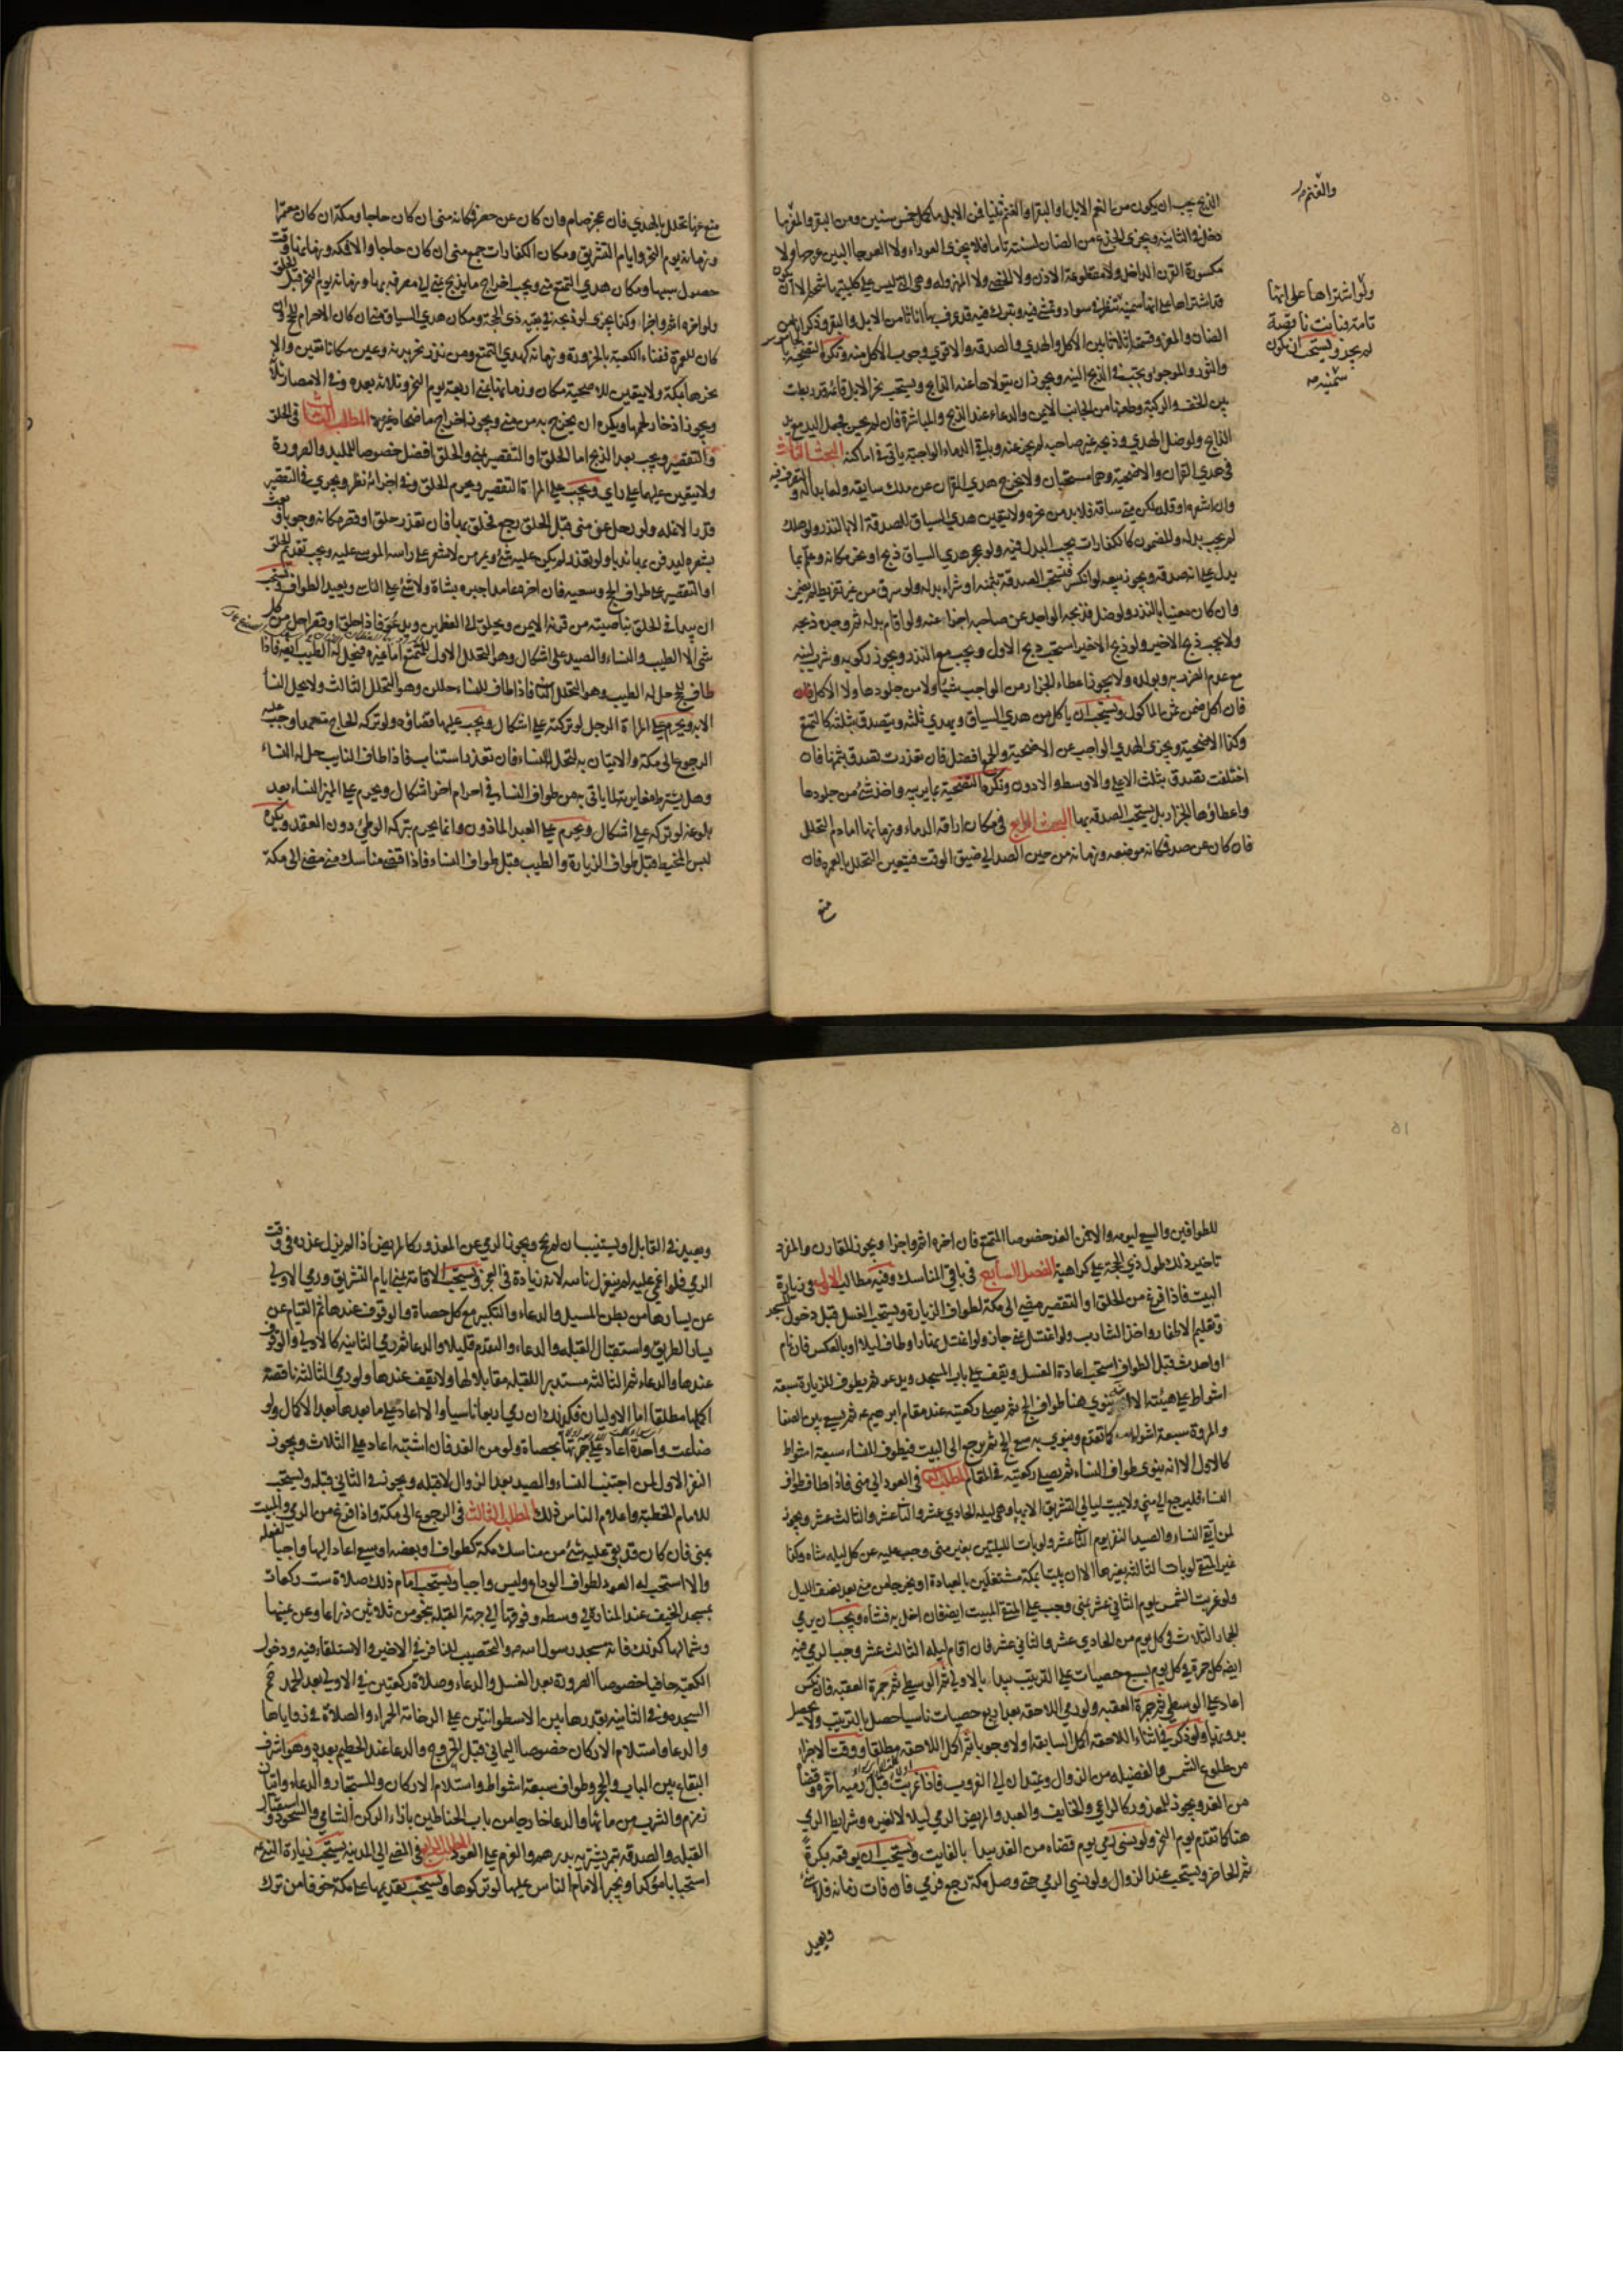 الذبح يجب ان يكون من النعم الابل او البقر او الغنم ثنيا فمن الابل ما كمل خمس سنين ومن البقر والمعز ما
والغنم
دخل في الثانية ويجزي الجذع من الضان لسنته تاما فلا يجزي العوراء ولا العرجا البين عرجها ولا
مكسورة القرن الداخل ولا مقطوعة الاذن ولا الخصي ولا المهزولة وهي التي ليس على كليتيها شحم الا ان يكون
ولو اشتراها على انها
تامة فبانت ناقصة
لم يجز ويستحب ان تكون
سمينة
قد اشتراها على انها سمينة تنظر في سواد وتمشي فيه وتبرك فيه قد عرف بها اناثا من الابل والبقر وذكرانا من
الضان والمعز وقسمتها اثلاثا بين الاكل والهدي والصدقة والاقوى وجوب الاكل منه وتكره التضحية بالجاموس
والثور والموجوء ويجب في الذبح النية ويجوز ان يتولاها عنه الذابح ويستحب نحر الابل قائمة قد ربطت
بين الخف والركبة وطعنها من الجانب الايمن والدعاء عند الذبح والمباشرة فان لم يحسن جعل اليد مع يد
الذابح ولو ضل الهدي وذبحه غير صاحبه لم يجز عنه وباقي الدماء الواجبة ياتي في اماكنه البحث الثالث
في هدي القران والاضحية وهما مستحبان ولا يخرج هدي القران عن ملك سايقه وله ابداله والتصرف فيه
وان اشعره او قلده لكن متى ساقه فلا بد من نحره ولا يتعين هدي السياق للصدقة الا بالنذر ولو هلك
لم يجب بدله والمضمون كالكفارات يجب البدل فيه ولو عجز هدي السياق ذبح او نحر مكانه وعلم بما
يدل على انه صدقة ويجوز بيعه لو انكسر فيستحب الصدقة بثمنه او شراء بدله ولو سرق من غير تفريط لم يضمن
وان كان معينا بالنذر ولو ضل فذبحه الواجد عن صاحبه اجزا عنه ولو اقام بدله ثم وجده ذبحه
ولا يجب ذبح الاخير ولو ذبح الاخير استحب ذبح الاول ويجب مع النذر ويجوز ركوبه وشرب لبنه
مع عدم الضرر به وبولده ولا يجوز اعطاء الجزار من الواجب شيئا ولا من جلودها ولا الاكل فان
فان اكل ضمن ثمن الماكول ويستحب ان ياكل من هدي السياق ويهدي ثلثه ويتصدق بثلثه كالتمتع
وكذا الاضحية ويجزي الهدي الواجب عن الاضحية والجمع افضل فان تعذرت تصدق بثمنها فان
اختلفت تصدق بثلث الاعلى والاوسط والادون وتكره التضحية بما يربيه واخذ شيء من جلودها
واعطاؤها الجزار بل يستحب الصدقة بها البحث الرابع في مكان اراقة الدماء وزمانها اما دم التحلل
فان كان عن صد فمكانه موضعه وزمانه من حين الصد الى ضيق الوقت فيتعين التحلل بالعمرة فان
منع
منع عنها تحلل بالهدي فان عجز صام وان كان عن حصر فمكانه منى ان كان حاجا ومكة ان كان معتمرا
وزمانه يوم النحر وايام التشريق ومكان الكفارات جمع منى ان كان حاجا والا فمكة وزمانها وقت
حصول سببها ومكان هدي التمتع منى ويجب اخراج ما يذبح بمنى الى مصرفه بها وزمانه يوم النحر قبل الحلق
ولو اخره اثم واجزا وكذا يجزي لو ذبحه في بقية ذي الحجة ومكان هدي السياق منى ان كان الاحرام للحج وان
كان للعمرة ففناء الكعبة بالحزورة وزمانه كهدي التمتع ومن نذر نحر بدنة وعين مكانا تعين والا
نحرها بمكة ولا يتعين للاضحية مكان وزمانها بمنى اربعة يوم النحر وثلاثة بعده وفي الامصار ثلاثة
ويجوز ادخار لحمها ويكره ان يخرج به من منى ويجوز اخراج ما ضحاه غيره المطلب الثالث في الحلق
والتقصير ويجب بعد الذبح اما الحلق او التقصير بمنى والحلق افضل خصوصا للملبد والصرورة
ولا يتعين عليهما على راي ويجب على المراة التقصير ويحرم الحلق وفي اجزائه نظر ويجزي في التقصير
قدر الانملة ولو رحل عن منى قبل الحلق رجع فحلق بها فان تعذر حلق او قصر مكانه وجوبا وبعث
بشعره ليدفن بها ندبا ولو تعذر لم يكن عليه شيء ويمر من لا شعر على راسه الموسى عليه ويجب تقديم الحلق
او التقصير على طواف الحج وسعيه فان اخره عامدا جبره بشاة ولا شيء على الناسي ويعيد الطواف ويستحب
ان يبدا في الحلق بناصيته من قرنه الايمن ويحلق الى العظمين ويدعو فاذا حلق او قصر احل من كل
شيء الا الطيب والنساء والصيد على اشكال وهو التحلل الاول للمتمتع اما غيره فيحل له الطيب ايضا فاذا
طاف للحج حل له الطيب وهو التحلل الثاني فاذا طاف للنساء حللن وهو التحلل الثالث ولا يحل النساء
الا به ويحرم على المراة الرجل لو تركته على اشكال ويجب عليها قضاؤه ولو تركه الحاج متعمدا وجب عليه
الرجوع الى مكة والاتيان به لتحل النساء فان تعذر استناب فاذا طاف النايب حل له النساء
وهل يشترط مغايرته لما ياتي به من طواف النساء في احرام اخر اشكال ويحرم على المميز النساء بعد
بلوغه لو تركه على اشكال ويحرم على العبد الماذون وانما يحرم بتركه الوطئ دون العقد ويكره
لبس المخيط قبل طواف الزيارة والطيب قبل طواف النساء فاذا قضى مناسك منى مضى الى مكة
للطوافين والسعي ليومه والا فمن الغد خصوصا المتمتع فان اخره اثم واجزا ويجوز للقارن والمفرد
تاخير ذلك طول ذي الحجة على كراهية الفصل السابع في باقي المناسك وفيه مطالب الاول في زيارة
البيت فاذا فرغ من الحلق او التقصير مضى الى مكة لطواف الزيارة ويستحب الغسل قبل دخول المسجد
وتقليم الاظفار واخذ الشارب ولو اغتسل بمنى جاز ولو اغتسل نهارا وطاف ليلا او بالعكس فان نام
او احدث قبل الطواف استحب اعادة الغسل ويقف على باب المسجد ويدعو ثم يطوف للزيارة سبعة
اشواط على هيئته الا انه ينوي هنا طواف الحج ثم يصلي ركعتيه عند مقام ابرهيم ع ثم يسعى بين الصفا
والمروة سبعة اشواط كما تقدم وينوي به سعي الحج ثم يرجع الى البيت فيطوف للنساء سبعة اشواط
كالاول الا انه ينوي طواف النساء ثم يصلي ركعتيه في المقام المطلب الثاني في العود الى منى فاذا طاف طواف
النساء فليرجع الى منى ولا يبيت ليالي التشريق الا بها وهي ليلة الحادي عشر والثاني عشر والثالث عشر ويجوز
لمن اتقى النساء والصيد النفر يوم الثاني عشر ولو بات الليلتين بغير منى وجب عليه عن كل ليلة شاة وكذا
غير المتقي لو بات الثالثة بغيرها الا ان يبيتا بمكة مشتغلين بالعبادة او يخرجا من منى بعد نصف الليل
ولو غربت الشمس يوم الثاني عشر بمنى وجب على المتقي المبيت ايضا فان اخل به فشاة ويجب ان يرمي
الجمار الثلاث في كل يوم من الحادي عشر والثاني عشر فان اقام ليلة الثالث عشر وجب الرمي فيه
ايضا كل جمرة في كل يوم بسبع حصيات على الترتيب يبدا بالاولى ثم الوسطى ثم جمرة العقبة فان نكس
اعاد على الوسطى ثم جمرة العقبة ولو رمى اللاحقة بعد اربع حصيات ناسيا حصل بالترتيب ولا يحصل
بدونها ولو ذكر في اثناء اللاحقة اكمل السابقة اولا وجوبا ثم اكمل اللاحقة مطلقا ووقت الاجزاء
من طلوع الشمس والفضيلة من الزوال ويمتد ان الى الغروب فاذا غربت قبل رميه اخره وقضاه
من الغد ويجوز للمعذور كالراعي والخايف والعبد والمريض الرمي ليلا لا لغيره وشرايط الرمي
هنا كما تقدم يوم النحر ولو نسي رمي يوم قضاه من الغد يبدا بالفايت ويستحب ان يوقعه بكرة
ثم الحاضر ويستحب عند الزوال ولو نسي الرمي حتى وصل مكة رجع فرمى فان فات زمانه فلا شيء
ويعيد
ويعيد في القابل او يستنيب ان لم يحج ويجوز الرمي عن المعذور كالمريض اذا لم يزل عذره في وقت
الرمي فلو اغمي عليه لم ينعزل نائبه لانه زيادة في العجز ويستحب الاقامة بمنى ايام التشريق ورمي الاولى
عن يسارها من بطن المسيل والدعاء والتكبير مع كل حصاة والوقوف عندها ثم القيام عن
يسار الطريق واستقبال القبلة والدعاء والتقدم قليلا والدعاء ثم رمي الثانية كالاولى والوقوف
عندها والدعاء ثم الثالثة مستدبر القبلة مقابلا لها ولا يقف عندها ولو رمى الثالثة ناقصة
اكملها مطلقا اما الاوليان فكذلك ان رمى اربعا ناسيا والا اعاد على ما بعدها بعد الاكمال ولو
ضاعت واحدة اعاد على جمرتها بحصاة ولو من الغد فان اشتبه اعاد على الثلاث ويجوز
النفر الاول لمن اجتنب النساء والصيد بعد الزوال لا قبله ويجوز في الثاني قبله ويستحب
للامام الخطبة واعلام الناس ذلك المطلب الثالث في الرجوع الى مكة واذا فرغ من الرمي والمبيت
بمنى فان كان قد بقي عليه شيء من مناسك مكة كطواف او بعضه او سعي عاد اليها واجبا لفعله
والا استحب له العود لطواف الوداع وليس واجبا ويستحب امام ذلك صلاة ست ركعات
بمسجد الخيف عند المنارة في وسطه وفوقها الى جهة القبلة بنحو من ثلاثين ذراعا وعن يمينها
وشمالها كذلك فانه مسجد رسول الله ص والتحصيب للنافر في الاخير والاستلقاء فيه ودخول
الكعبة حافيا خصوصا الصرورة بعد الغسل والدعاء وصلاة ركعتين في الاولى بعد الحمد حم
السجدة وفي الثانية بقدرها بين الاسطوانتين على الرخامة الحمراء والصلاة في زواياها
والدعاء واستلام الاركان خصوصا اليماني قبل الخروج والدعاء عند الحطيم بعده وهو اشرف
البقاع بين الباب والحجر وطواف سبعة اشواط واستلام الاركان والمستجار والدعاء واتيان
زمزم والشرب من مائها والدعاء خارجا من باب الحناطين بازاء الركن الشامي والسجود واستقبال
القبلة والصدقة بتمر يشتريه بدرهم والعزم على العود المطلب الرابع في المضي الى المدينة يستحب زيارة النبي ص
استحبابا مؤكدا ويجبر الامام الناس عليها لو تركوها ويستحب تقديمها على مكة خوفا من ترك